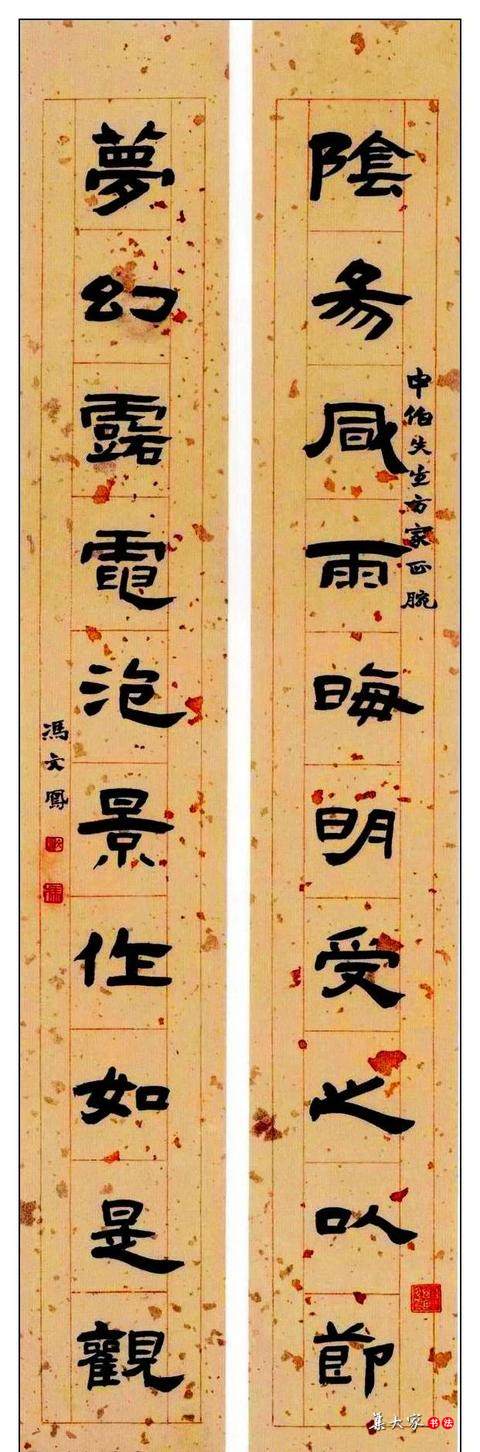 陰昜風雨晦明受之以節
中伯先生方家正腕
夢幻露電泡景作如是觀
馮文鳳
集大家书法